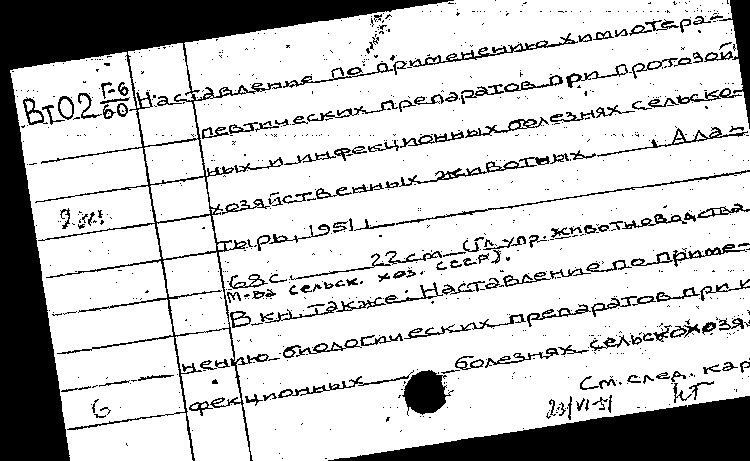 Вт02 Г-6/60
Наставление по применению химиотерапе-
певтических препаратов при протозой-
ных и инфекционных болезнях сельско-
хозяйственных животных. , Алап-
тырь, 1951,
68 с. 22 cm (Гл. упр. животноводства
М-ва сельск. хоз. СССР).
В кн. также: Наставление по приме-
нению биологических препаратов при
фекционных болезнях сельскохозя
См. след. кар
23/VI-51
6